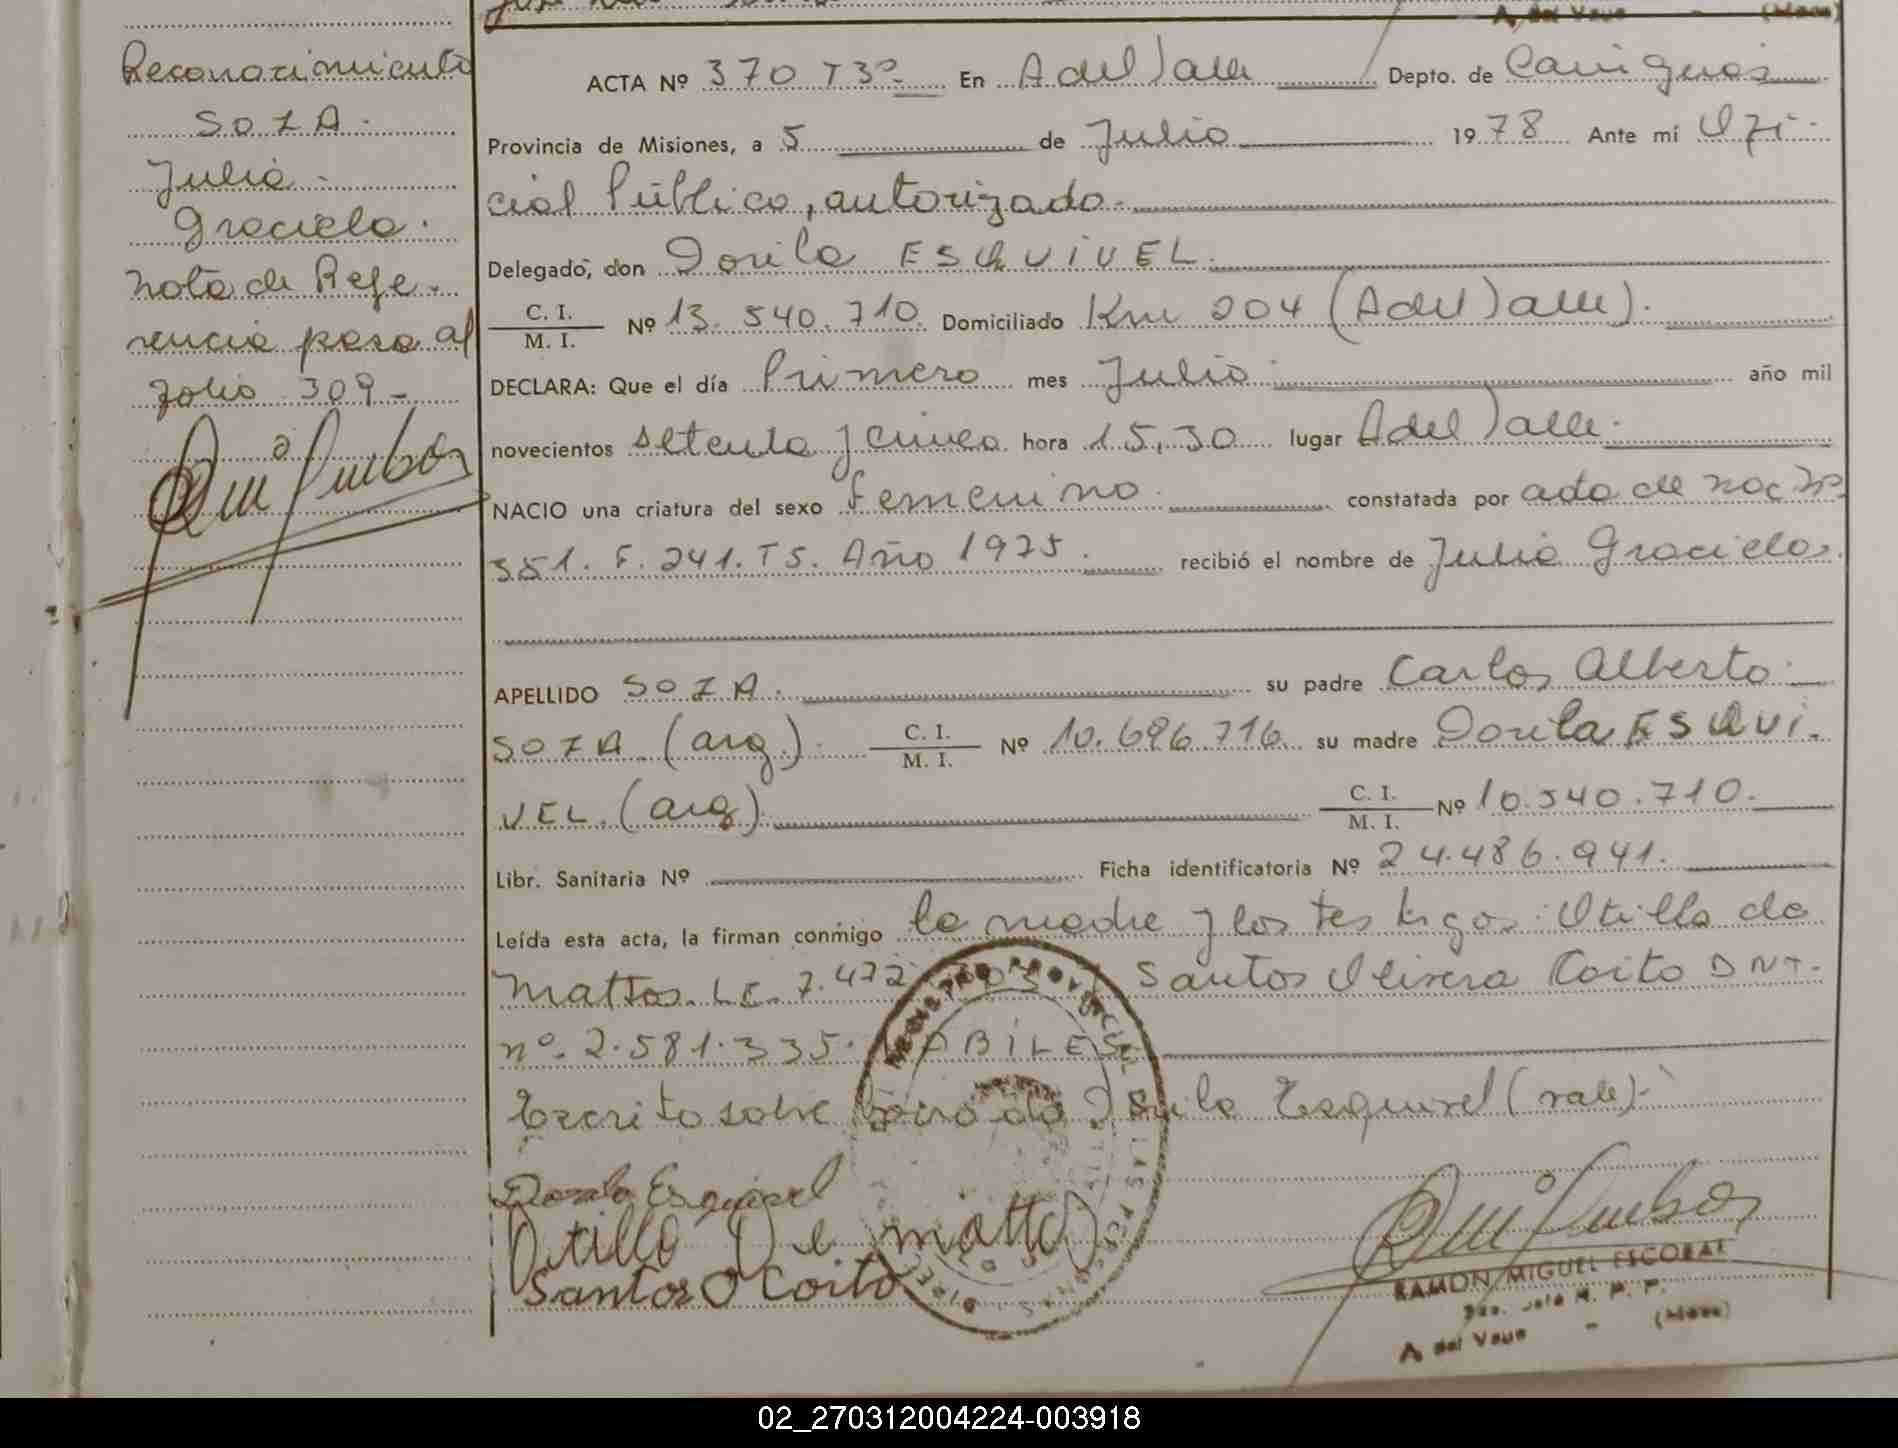 Reconocimiento
SOZA.
Julia
Graciela.
Nota de Refe-
rencia pasa al
folio 309-
A. del Valle - (Mnes)
ACTA Nº 370 T3º- En A del Valle Depto. de Cainguás
Provincia de Misiones, a 5 de Julio 1978 Ante mí Ofi-
cial Público, autorizado.
Delegado, don Dorila ESQUIVEL.
C. I.
M. I. Nº 13.540.710. Domiciliado Km 204 (A del Valle).
DECLARA: Que el día Primero mes Julio año mil
novecientos setenta y cinco hora 15,30 lugar A del Valle.
NACIO una criatura del sexo femenino. constatada por acta de nac Nº
351. F. 241. T5. Año 1975. recibió el nombre de Julia Graciela.
APELLIDO SOZA. su padre Carlos Alberto
SOZA (arg.). C. I.
M. I. Nº 10.696.716. su madre Dorila ESQUI-
VEL. (arg). C. I.
M. I. Nº 10.540.710.
Libr. Sanitaria Nº Ficha identificatoria Nº 24.486.941.
Leída esta acta, la firman conmigo la madre y los testigos: Otilla da
Mattos. LC. 7.472 Santos Olivera Coito DNI.
nº. 2.581.335. HABILES.
Escrito sobre Dorila Esquivel (vale)-
Dorila Esquivel
Otilla De mattos
Santos O Coito
REGISTRO PROVINCIAL DE LAS PERSONAS
RAMON MIGUEL ESCOBAR
A. del Valle - (Mnes)
02_270312004224-003918